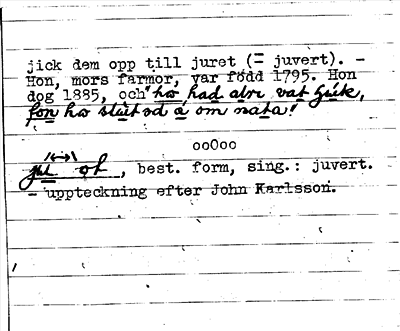 jick dem opp till juret (= juvert). -
Hon, mors farmor, var född 1795. Hon
dog 1885, och "ho had alri vat sjuk,
fon ho slut od å om nata!
ooOoo
, best. form, sing.: juvert.
- uppteckning efter John Karlsson.